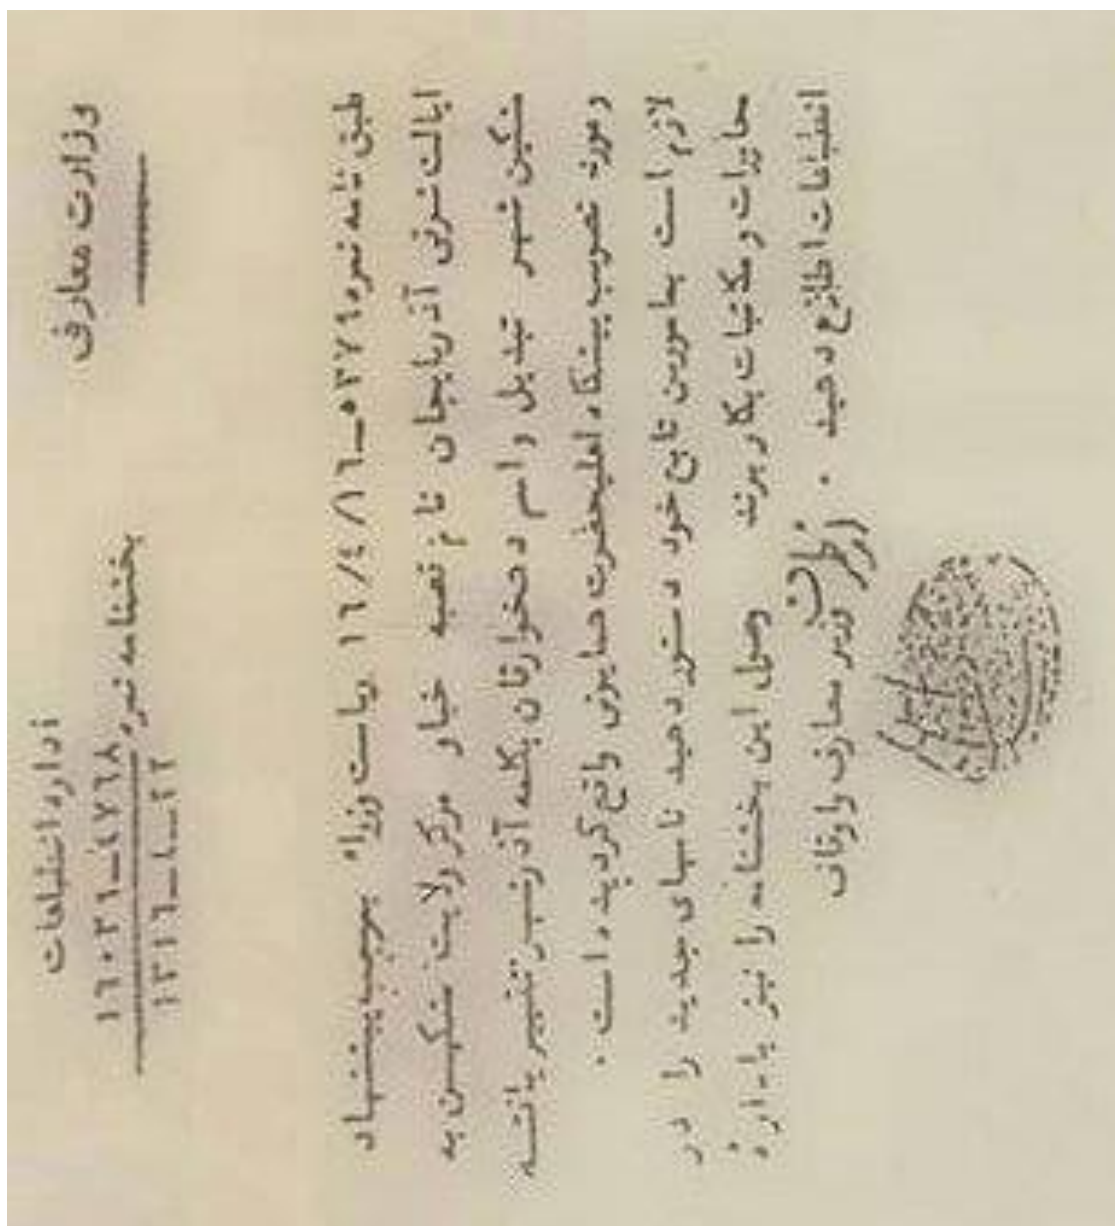 وزارت معارف
اداره انطباعات
بخشنامه نمره ۱۶۰۳۱-٤٧٦٨
۱۳۱٦-٤-۲۲
طبق نامه نمره ۵۳۷۶-۱۶/٤/۱۶ ریاست وزراء بموجب پیشنهاد
ایالت شرقی آذربایجان نام قصبه خیاو مرکز ولایت مشگین به
مشگین شهر تبدیل و اسم دهخوارقان بکلمه آذرشهر تغییر یافته
و مورد تصویب پیشگاه اعلیحضرت همایونی واقع گردیده است .
لازم است بمامورین تابع خود دستور دهید نامهای جدید را در
محاورات و مکتبات بکار برند وصول این بخشنامه را نیز باداره
انطباعات اطلاع دهید .
وزیر معارف و اوقاف